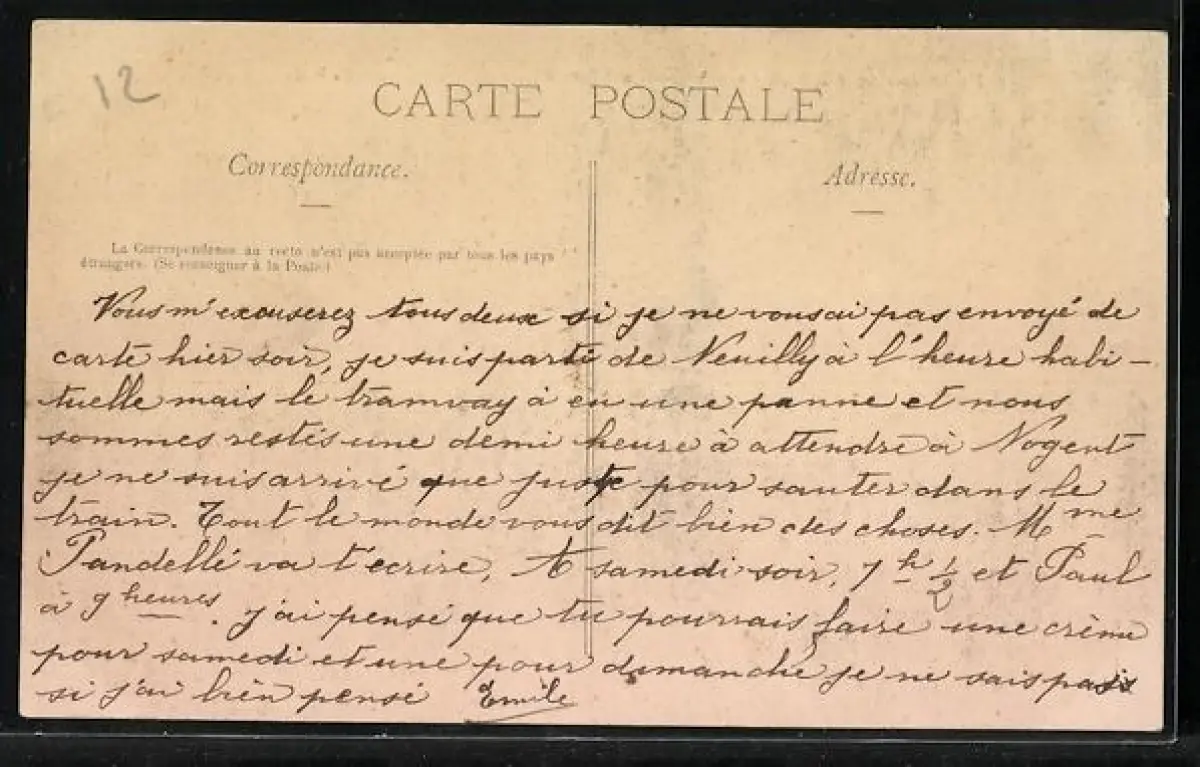 12
CARTE POSTALE
Correspondance.
Adresse.
La Correspondance au recto n'est pas acceptée par tous les pays
étrangers. (Se renseigner à la Poste)
Vous m'excuserez tous deux si je ne vous ai pas envoyé de
carte hier soir, je suis parti de Neuilly à l'heure habi-
tuelle mais le tramway à eu une panne et nous
sommes restés une demi heure à attendre à Nogent
je ne suis arrivé que juste pour sauter dans le
train. Tout le monde vous dit bien des choses. Mme
Pandellé va t'écrire, A samedi soir, 7h 1/2 et Paul
à 9 heures. j'ai pensé que tu pourrais faire une crème
pour samedi et une pour dimanche je ne sais pas
si j'ai bien pensé Emile